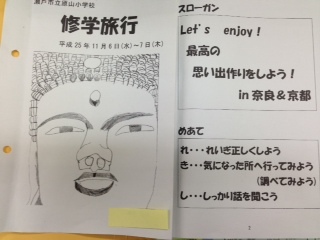 瀬戸市立原山小学校
修学旅行
平成25年11月6日(水)~7日(木)
スローガン
Let's enjoy!
最高の
思い出作りをしよう!
in 奈良&京都
めあて
れ・・・れいぎ正しくしよう
き・・・気になった所へ行ってみよう
(調べてみよう)
し・・・しっかり話を聞こう